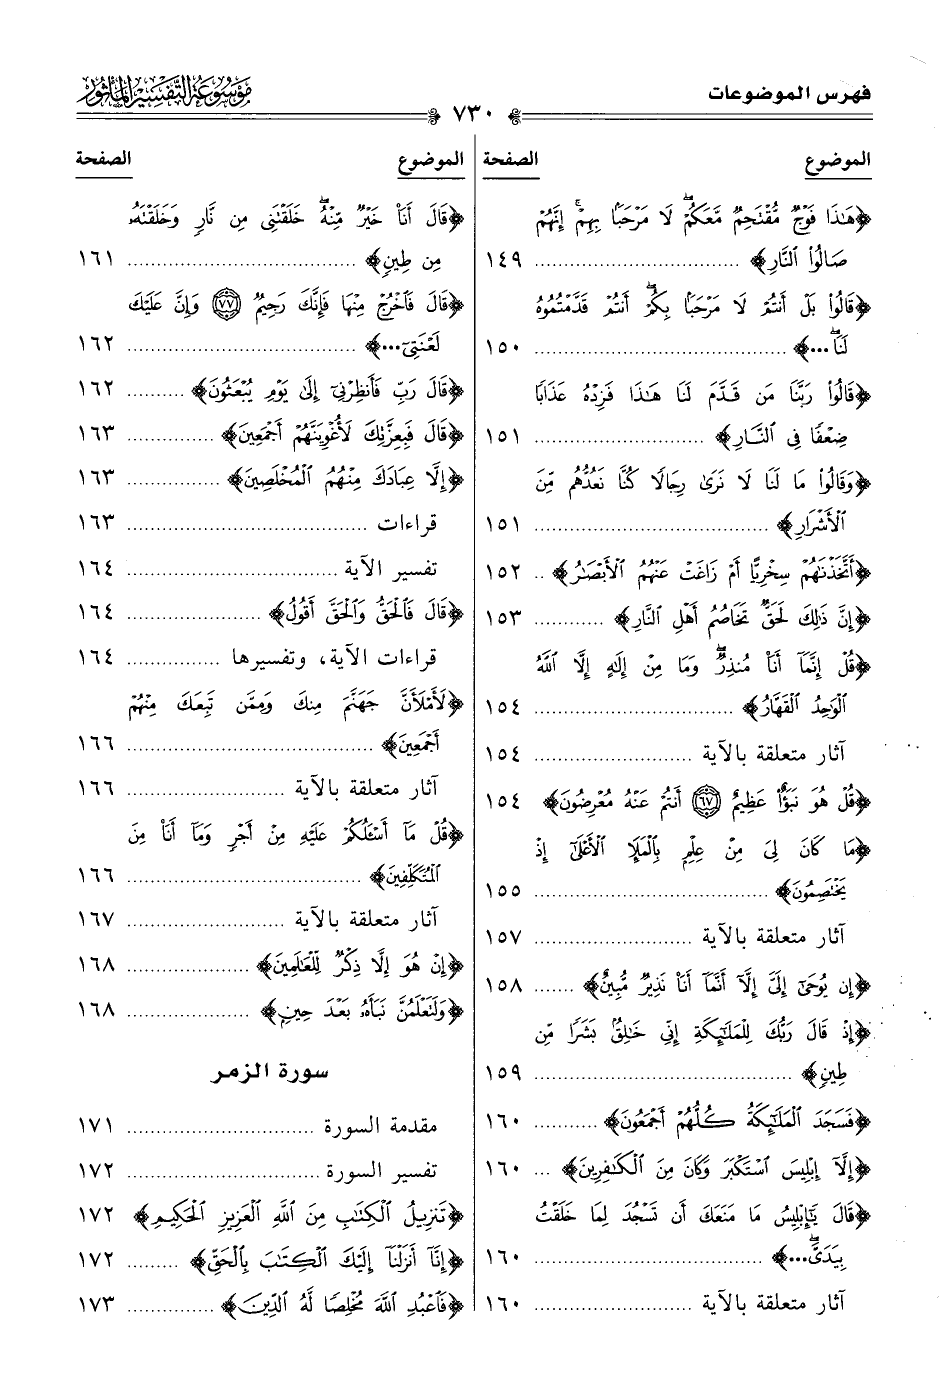 فهرس الموضوعات
٧٣٠
مَوْسُوعَةُ التَّفْسِيرِ المَأْثُورِ
الموضوع الصفحة
﴿هَٰذَا فَوْجٌ مُّقْتَحِمٌ مَّعَكُمْ ۖ لَا مَرْحَبًا بِهِمْ ۚ إِنَّهُمْ
صَالُوا۟ ٱلنَّارِ﴾ .......... ١٤٩
﴿قَالُوا۟ بَلْ أَنتُمْ لَا مَرْحَبًا بِكُمْ ۖ أَنتُمْ قَدَّمْتُمُوهُ
لَنَا ۖ...﴾ .......... ١٥٠
﴿قَالُوا۟ رَبَّنَا مَن قَدَّمَ لَنَا هَٰذَا فَزِدْهُ عَذَابًا
ضِعْفًا فِى ٱلنَّارِ﴾ .......... ١٥١
﴿وَقَالُوا۟ مَا لَنَا لَا نَرَىٰ رِجَالًا كُنَّا نَعُدُّهُم مِّنَ
ٱلْأَشْرَارِ﴾ .......... ١٥١
﴿أَتَّخَذْنَٰهُمْ سِخْرِيًّا أَمْ زَاغَتْ عَنْهُمُ ٱلْأَبْصَٰرُ﴾ .. ١٥٢
﴿إِنَّ ذَٰلِكَ لَحَقٌّ تَخَاصُمُ أَهْلِ ٱلنَّارِ﴾ .......... ١٥٣
﴿قُلْ إِنَّمَآ أَنَا۠ مُنذِرٌ ۖ وَمَا مِنْ إِلَٰهٍ إِلَّا ٱللَّهُ
ٱلْوَٰحِدُ ٱلْقَهَّارُ﴾ .......... ١٥٤
آثار متعلقة بالآية .......... ١٥٤
﴿قُلْ هُوَ نَبَؤٌا۟ عَظِيمٌ ٦٧ أَنتُمْ عَنْهُ مُعْرِضُونَ﴾ ١٥٤
﴿مَا كَانَ لِىَ مِنْ عِلْمٍۭ بِٱلْمَلَإِ ٱلْأَعْلَىٰٓ إِذْ
يَخْتَصِمُونَ﴾ .......... ١٥٥
آثار متعلقة بالآية .......... ١٥٧
﴿إِن يُوحَىٰٓ إِلَىَّ إِلَّآ أَنَّمَآ أَنَا۠ نَذِيرٌ مُّبِينٌ﴾ ....... ١٥٨
﴿إِذْ قَالَ رَبُّكَ لِلْمَلَٰٓئِكَةِ إِنِّى خَٰلِقٌۢ بَشَرًا مِّن
طِينٍ﴾ .......... ١٥٩
﴿فَسَجَدَ ٱلْمَلَٰٓئِكَةُ كُلُّهُمْ أَجْمَعُونَ﴾ .......... ١٦٠
﴿إِلَّآ إِبْلِيسَ ٱسْتَكْبَرَ وَكَانَ مِنَ ٱلْكَٰفِرِينَ﴾ ... ١٦٠
﴿قَالَ يَٰٓإِبْلِيسُ مَا مَنَعَكَ أَن تَسْجُدَ لِمَا خَلَقْتُ
بِيَدَىَّ ۖ...﴾ .......... ١٦٠
آثار متعلقة بالآية .......... ١٦٠
الموضوع الصفحة
﴿قَالَ أَنَا۠ خَيْرٌ مِّنْهُ ۖ خَلَقْتَنِى مِن نَّارٍ وَخَلَقْتَهُۥ
مِن طِينٍ﴾ .......... ١٦١
﴿قَالَ فَٱخْرُجْ مِنْهَا فَإِنَّكَ رَجِيمٌ ٧٧ وَإِنَّ عَلَيْكَ
لَعْنَتِىٓ...﴾ .......... ١٦٢
﴿قَالَ رَبِّ فَأَنظِرْنِىٓ إِلَىٰ يَوْمِ يُبْعَثُونَ﴾ .......... ١٦٢
﴿قَالَ فَبِعِزَّتِكَ لَأُغْوِيَنَّهُمْ أَجْمَعِينَ﴾ .......... ١٦٣
﴿إِلَّا عِبَادَكَ مِنْهُمُ ٱلْمُخْلَصِينَ﴾ .......... ١٦٣
قراءات .......... ١٦٣
تفسير الآية .......... ١٦٤
﴿قَالَ فَٱلْحَقُّ وَٱلْحَقَّ أَقُولُ﴾ .......... ١٦٤
قراءات الآية، وتفسيرها .......... ١٦٤
﴿لَأَمْلَأَنَّ جَهَنَّمَ مِنكَ وَمِمَّن تَبِعَكَ مِنْهُمْ
أَجْمَعِينَ﴾ .......... ١٦٦
آثار متعلقة بالآية .......... ١٦٦
﴿قُلْ مَآ أَسْـَٔلُكُمْ عَلَيْهِ مِنْ أَجْرٍ وَمَآ أَنَا۠ مِنَ
ٱلْمُتَكَلِّفِينَ﴾ .......... ١٦٦
آثار متعلقة بالآية .......... ١٦٧
﴿إِنْ هُوَ إِلَّا ذِكْرٌ لِّلْعَٰلَمِينَ﴾ .......... ١٦٨
﴿وَلَتَعْلَمُنَّ نَبَأَهُۥ بَعْدَ حِينٍۭ﴾ .......... ١٦٨
سورة الزمر
مقدمة السورة .......... ١٧١
تفسير السورة .......... ١٧٢
﴿تَنزِيلُ ٱلْكِتَٰبِ مِنَ ٱللَّهِ ٱلْعَزِيزِ ٱلْحَكِيمِ﴾ ١٧٢
﴿إِنَّآ أَنزَلْنَآ إِلَيْكَ ٱلْكِتَٰبَ بِٱلْحَقِّ﴾ ......... ١٧٢
﴿فَٱعْبُدِ ٱللَّهَ مُخْلِصًا لَّهُ ٱلدِّينَ﴾ .......... ١٧٣